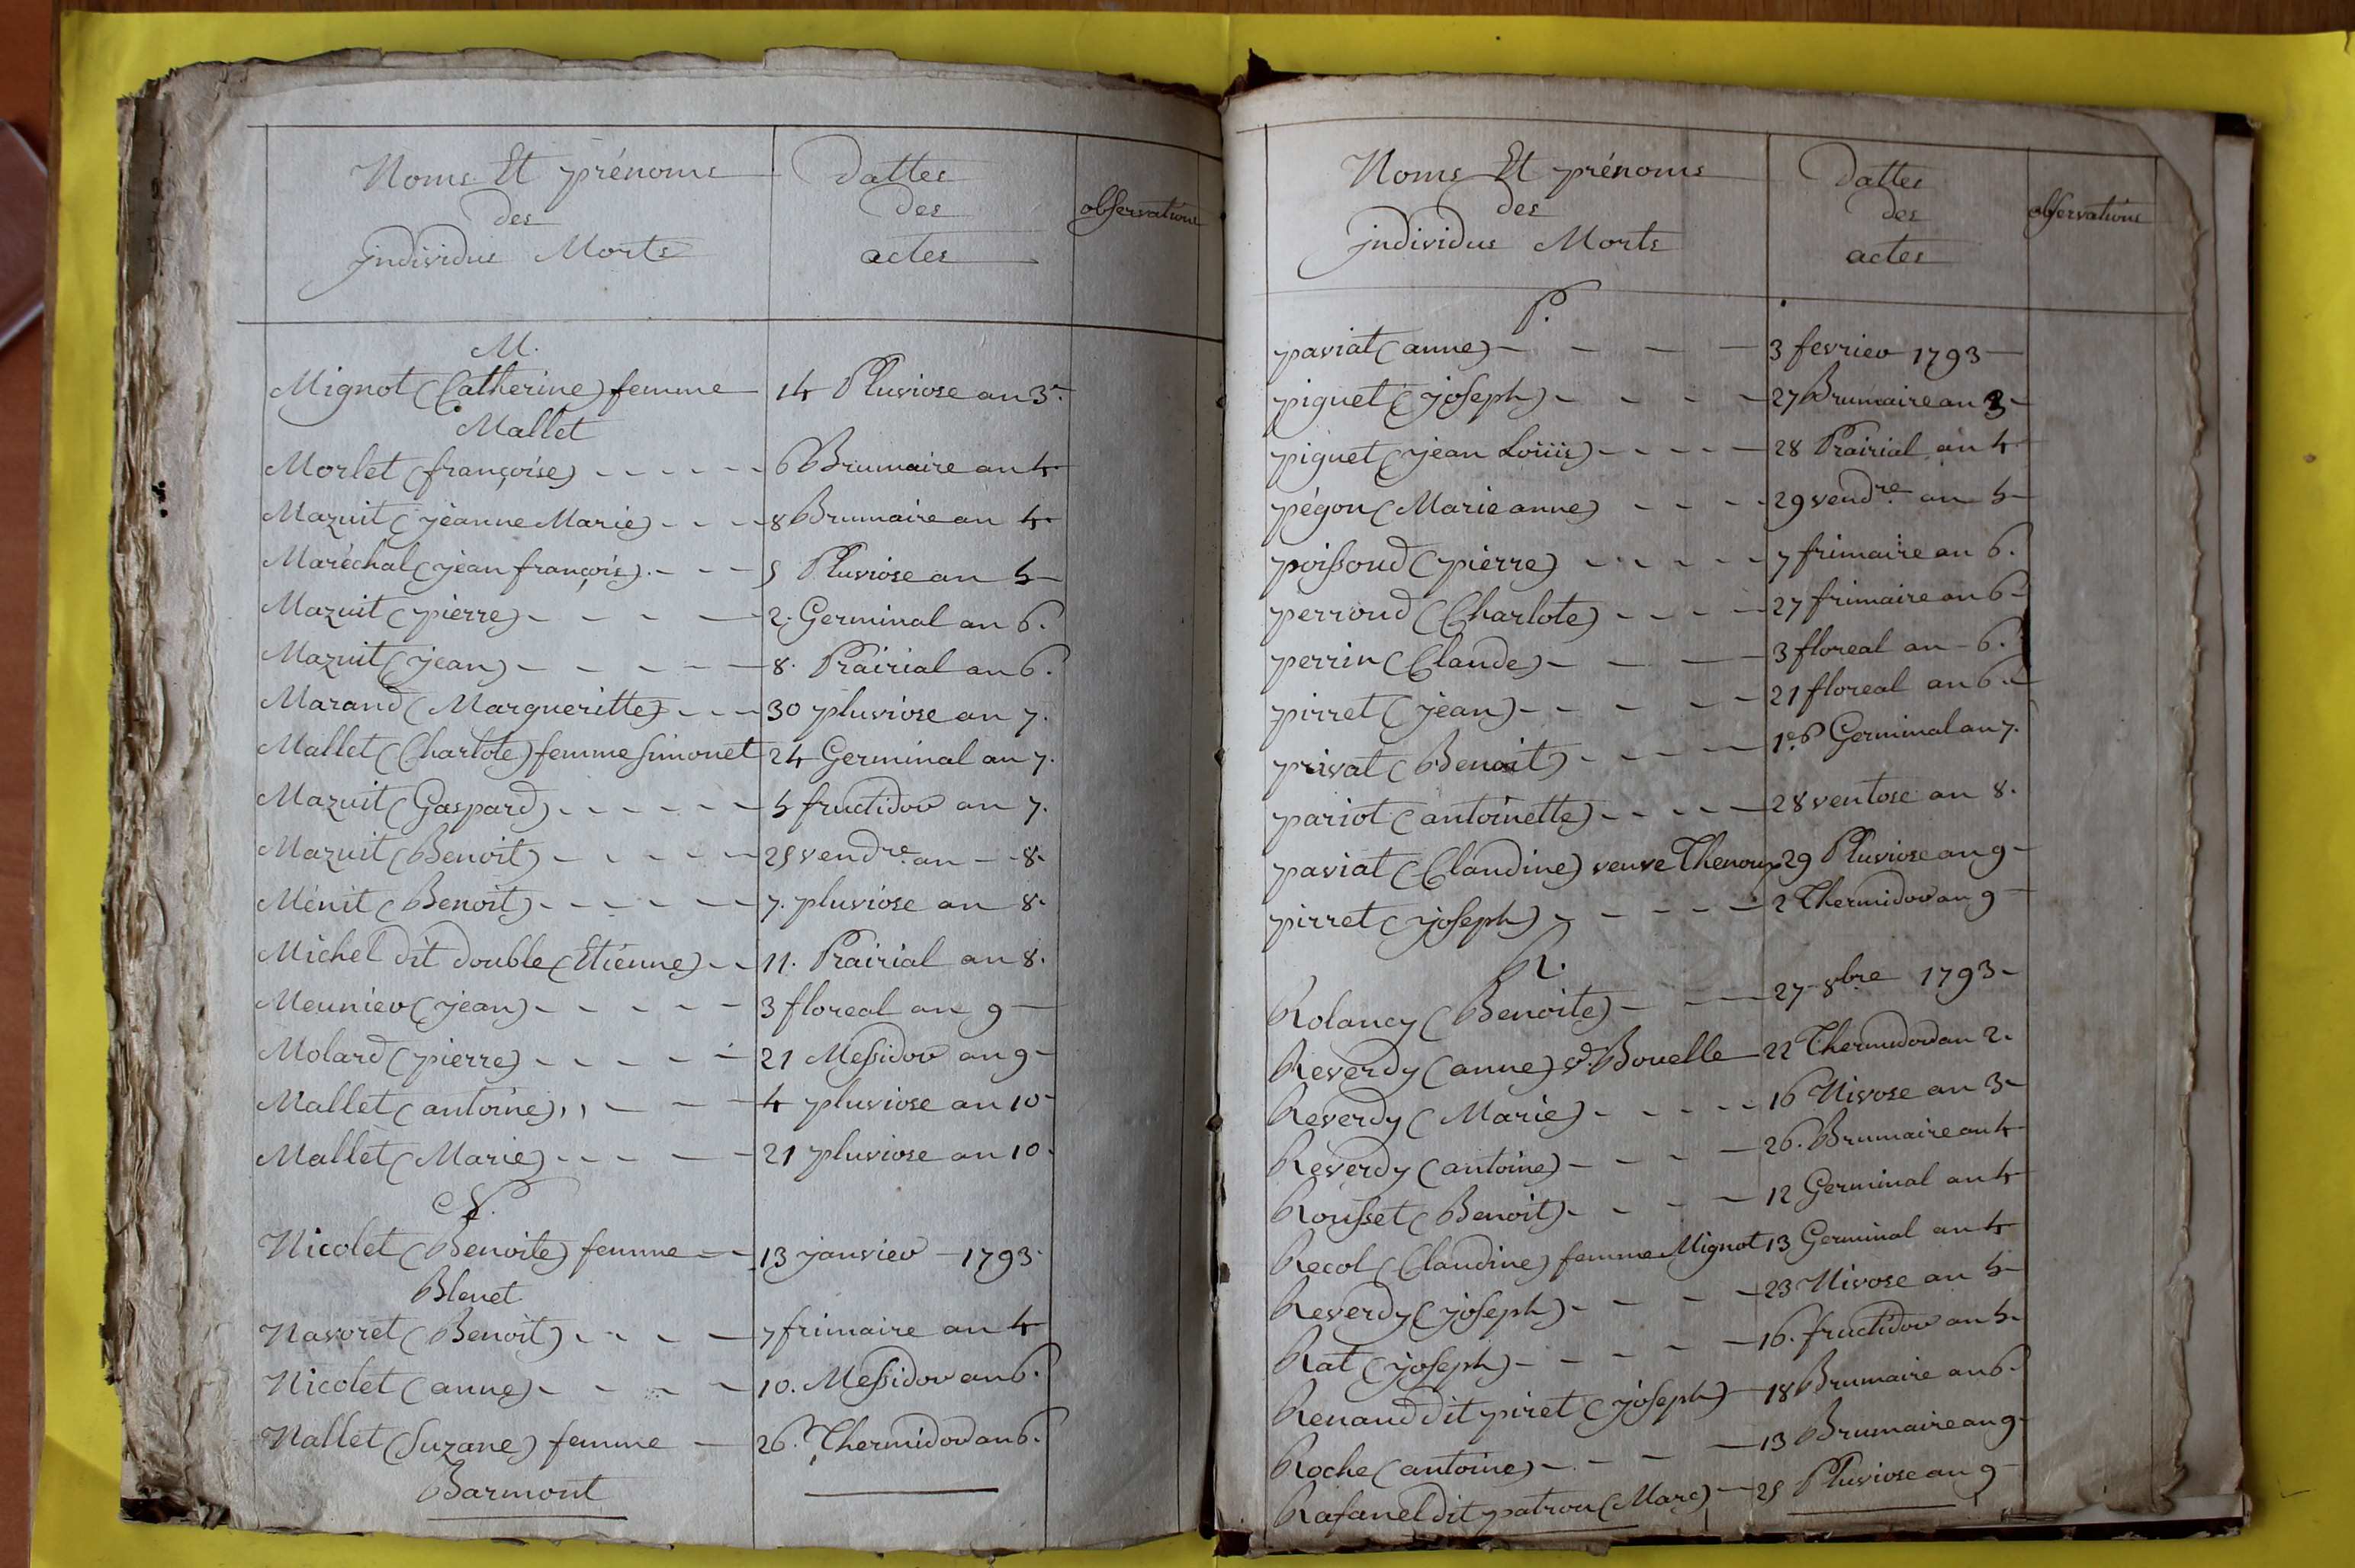 Noms Et prénoms
des
jndividus Morts
Dattes
des
actes
observations
M.
Mignot (Catherine) femme 14 Pluviose an 3e
Mallet
Morlet (françoise) 6 Brumaire an 4
Mazuit (jéanne Marie) 8 Brumaire an 4
Maréchal (jéan françois) 5 Pluviose an 5
Mazuit (pierre) 2. Germinal an 6.
Mazuit (jean) 8. Prairial an 6.
Marand (Margueritte) 30 pluviose an 7.
Mallet (Charlote) femme simonet 24 Germinal an 7.
Mazuit (Gaspard) 5 fructidor an 7.
Mazuit (Benoit) 25 vendre an 8
Ménit (Benoit) 7. pluviose an 8
Michel dit double (Etienne) 11. Prairial an 8.
Meunier (jean) 3 floreal an 9
Molard (pierre) 21 Messidor an 9
Mallet (antoine) 4 pluviose an 10
Mallet (Marie) 21 pluviose an 10
N.
Nicolet (Benoite) femme 13 janvier 1793
Blanet
Navoret (Benoit) 7 frimaire an 4
Nicolet (anne) 10. Messidor an 6.
Nallet (Suzane) femme 26. Thermidor an 6.
Barmont
Noms Et prénoms
des
jndividus Morts
Dattes
des
actes
observations
P.
paviat (anne) 3 fevrier 1793
piguet (joseph) 27 Brumaire an 3
piguet (jéan Loüis) 28 Prairial an 4
pégon (Marie anne) 29 vendre an 5
poissoud (pierre) 7 frimaire an 6.
perroud (Charlote) 27 frimaire an 6
perrin (Claude) 3 floreal an 6.
pirret (jéan) 21 floreal an 6.
privat (Benoit) 1er Germinal an 7.
pariot (antoinette) 28 ventose an 8.
paviat (Claudine) veuve Thenoux 29 Pluviose an 9
pirret (joseph) 2 Thermidor an 9
R.
Rolancy (Benoite) 27 8bre 1793
Reverdy (anne) v. Bouelle 22 Thermidor an 2.
Reverdy (Marie) 16 Nivose an 3
Reverdy (antoine) 26. Brumaire an 4
Rousset (Benoit) 12 Germinal an 4
Recol (Claudine) femme Mignot 13 Germinal an 4
Reverdy (joseph) 23 Nivose an 5
Rat (joseph) 16. fructidor an 5
Renaud dit piret (joseph) 18 Brumaire an 6.
Roche (antoine) 13 Brumaire an 9
Rafanel dit patron (Marc) 25 Pluviose an 9